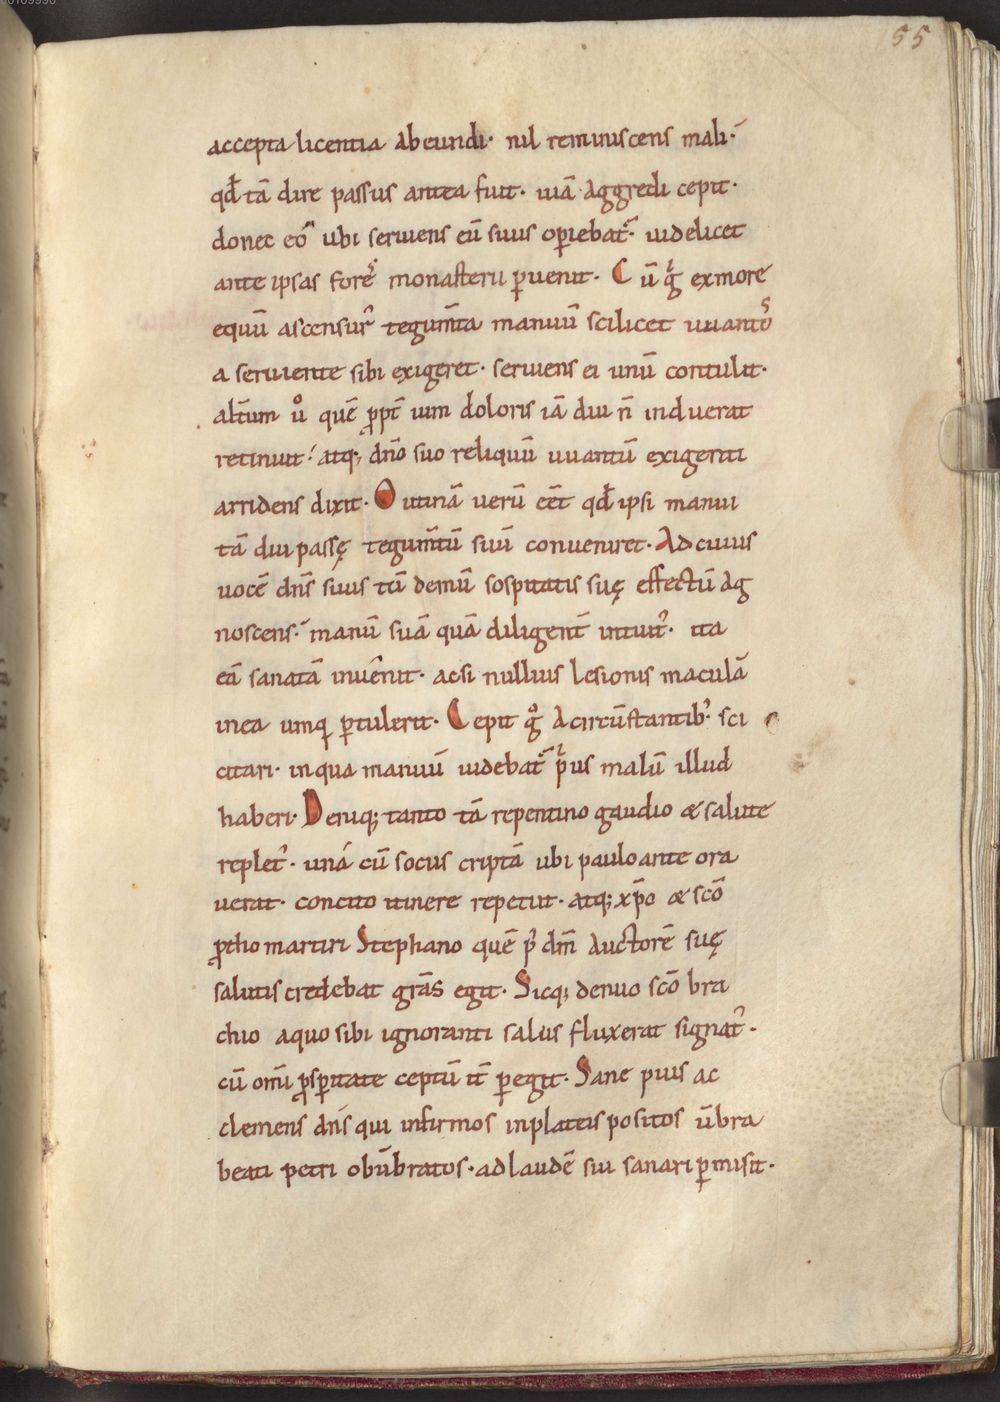 55
accepta licentia abeundi· nil reminiscens mali·
qd̄ tā dire passus antea fuit· uiā aggredi cepit·
donec eo ubi seruiens eū suus opiebat᷒· uidelicet
ante ipsas fores monasterii ꝑuenit· Cū gͥ ex more
equū ascensur᷒ tegum̄ta manuū scilicet uuantos
a seruiente sibi exigeret· seruiens ei unū contulit·
alt̄um uͦ quē ꝓpt̄ uim doloris iā diu n̄ induerat
retinuit· atq; dn̄o suo reliquū uuantū exigenti
arridens dixit· O utinā uerū eēt qd̄ ipsi manui
tā diu passę tegum̄tū suū conueniret· Ad cuius
uocē dn̄s suus tū demū sospitatis suę effectū ag
noscens· manū suā quā diligent̄ intuit᷒· ita
eā sanatā inuēnit· acsi nullius lesionis maculā
in ea umq̄ ꝑtulerit· Cepit gͦ a circūstantib᷒ sci
citari· in qua manuū uidebat᷒ pͥus malū illud
haberi· Deniq; tanto tā repentino gaudio & salute
replet᷒· unā cū sociis criptā ubi paulo ante ora
uerat· concito itinere repetiit· atq; xp̄o & sc̄o
ꝓtho martiri Stephano quē p᷒ dm̄ auctorē suę
salutis credebat grās egit· Sicq; denuo sc̄o bra
chio a quo sibi ignoranti salus fluxerat signat᷒·
cū om̄i ꝓsꝑitate ceptū it̄ ꝑegit· Sane pius ac
clemens dn̄s qui infirmos in plateis positos ūbra
beati petri obūbratos· ad laudē sui sanari ꝑmisit·